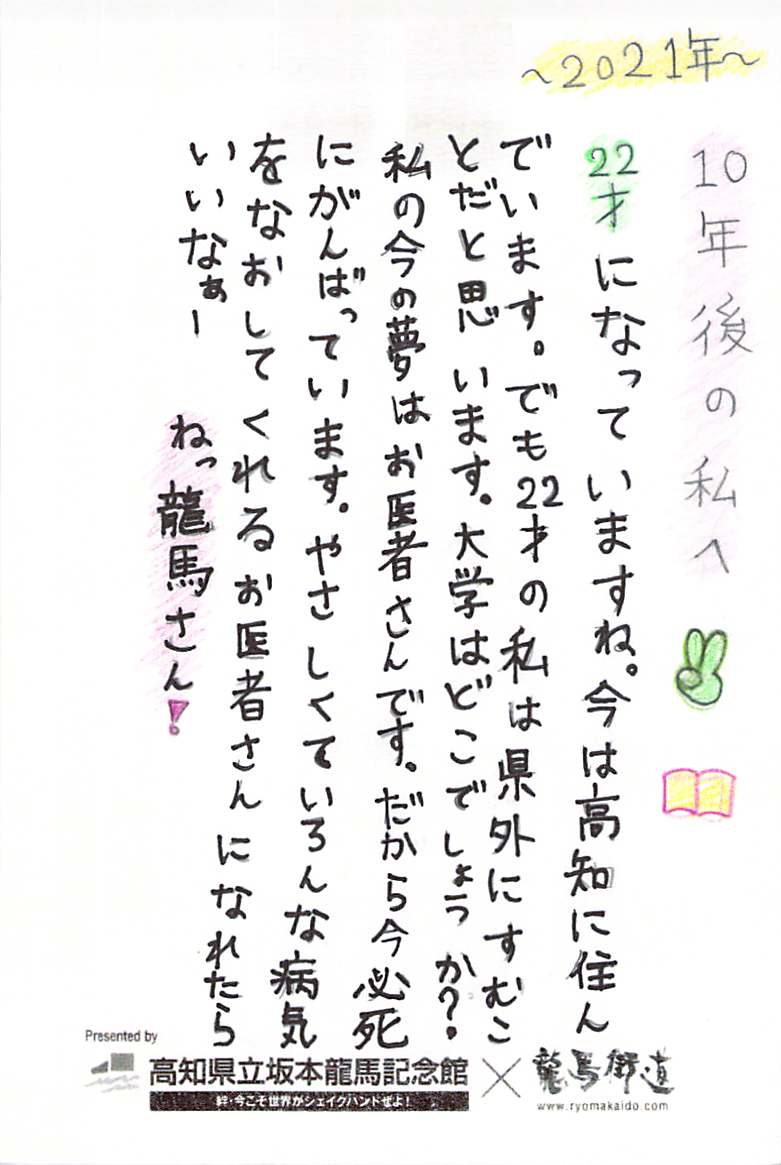 ~2021年~
10年後の私へ
22才になっていますね。今は高知に住ん
でいます。でも22才の私は県外にすむこ
とだと思います。大学はどこでしょうか?
私の今の夢はお医者さんです。だから今必死
にがんばっています。やさしくていろんな病気
をなおしてくれるお医者さんになれたら
いいなぁー
ねっ龍馬さん!
Presented by
高知県立坂本龍馬記念館×龍馬街道
絆・今こそ世界がシェイクハンドぜよ!
www.ryomakaido.com